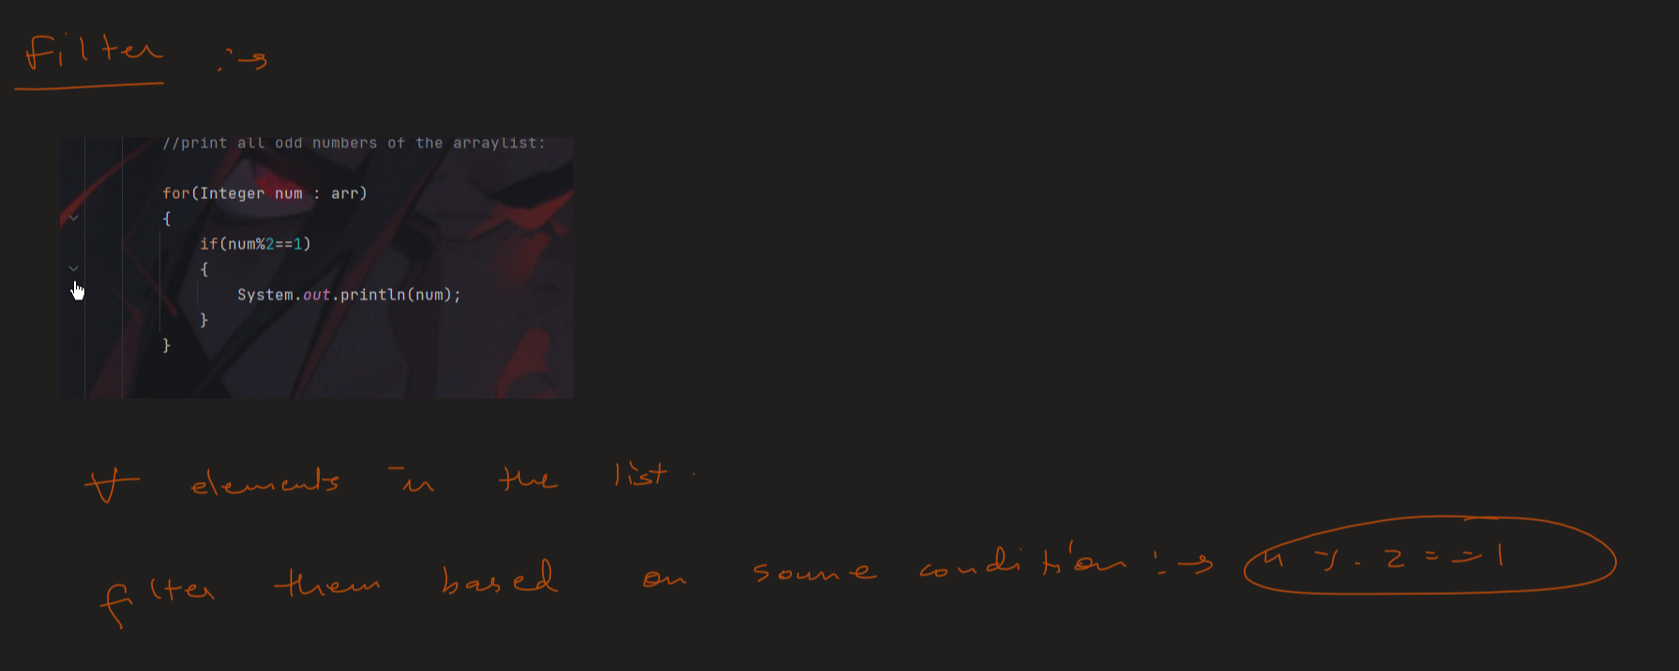 Filter :→
//print all odd numbers of the arraylist:
for(Integer num : arr)
{
if(num%2==1)
{
System.out.println(num);
}
}
∀ elements in the list .
filter them based on some condition :→ n % 2 = = 1